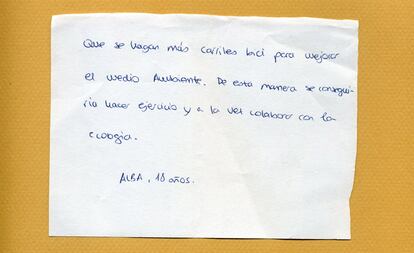 Que se hagan más carriles bici para mejorar
el medio Ambiente. De esta manera se consegui-
ría hacer ejercicio y a la vez colaborar con la
ecología.
ALBA, 18 años.